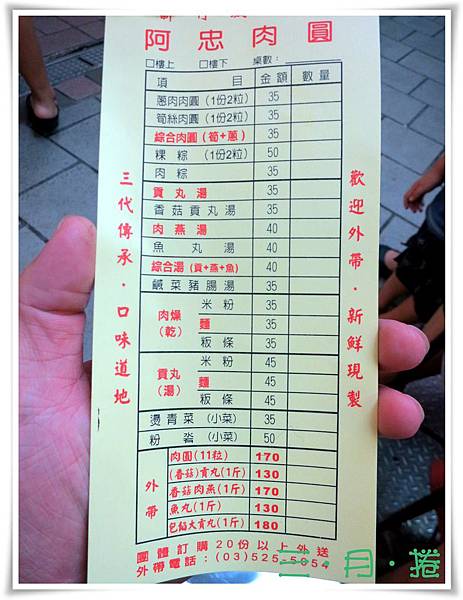 阿忠肉圓
□樓上 □樓下 桌數：
項目 金額 數量
蔥肉肉圓（1份2粒） 35
筍絲肉圓（1份2粒） 35
綜合肉圓（筍+蔥） 35
粿粽（1份2粒） 50
肉粽 35
貢丸湯 35
香菇貢丸湯 35
肉燕湯 40
魚丸湯 40
綜合湯（貢+燕+魚） 40
鹹菜豬腸湯 35
肉燥（乾） 米粉 35
麵 35
粄條 35
貢丸（湯） 米粉 45
麵 45
粄條 45
燙青菜（小菜） 35
粉粩（小菜） 50
外帶 肉圓(11粒) 170
(香菇)貢丸(1斤) 130
香菇肉燕(1斤) 170
魚丸(1斤) 130
包餡大貢丸(1斤) 180
團體訂購20份以上外送
外帶電話：(03)525-5054
三代傳承·口味道地
歡迎外帶·新鮮現製
三·月·捲